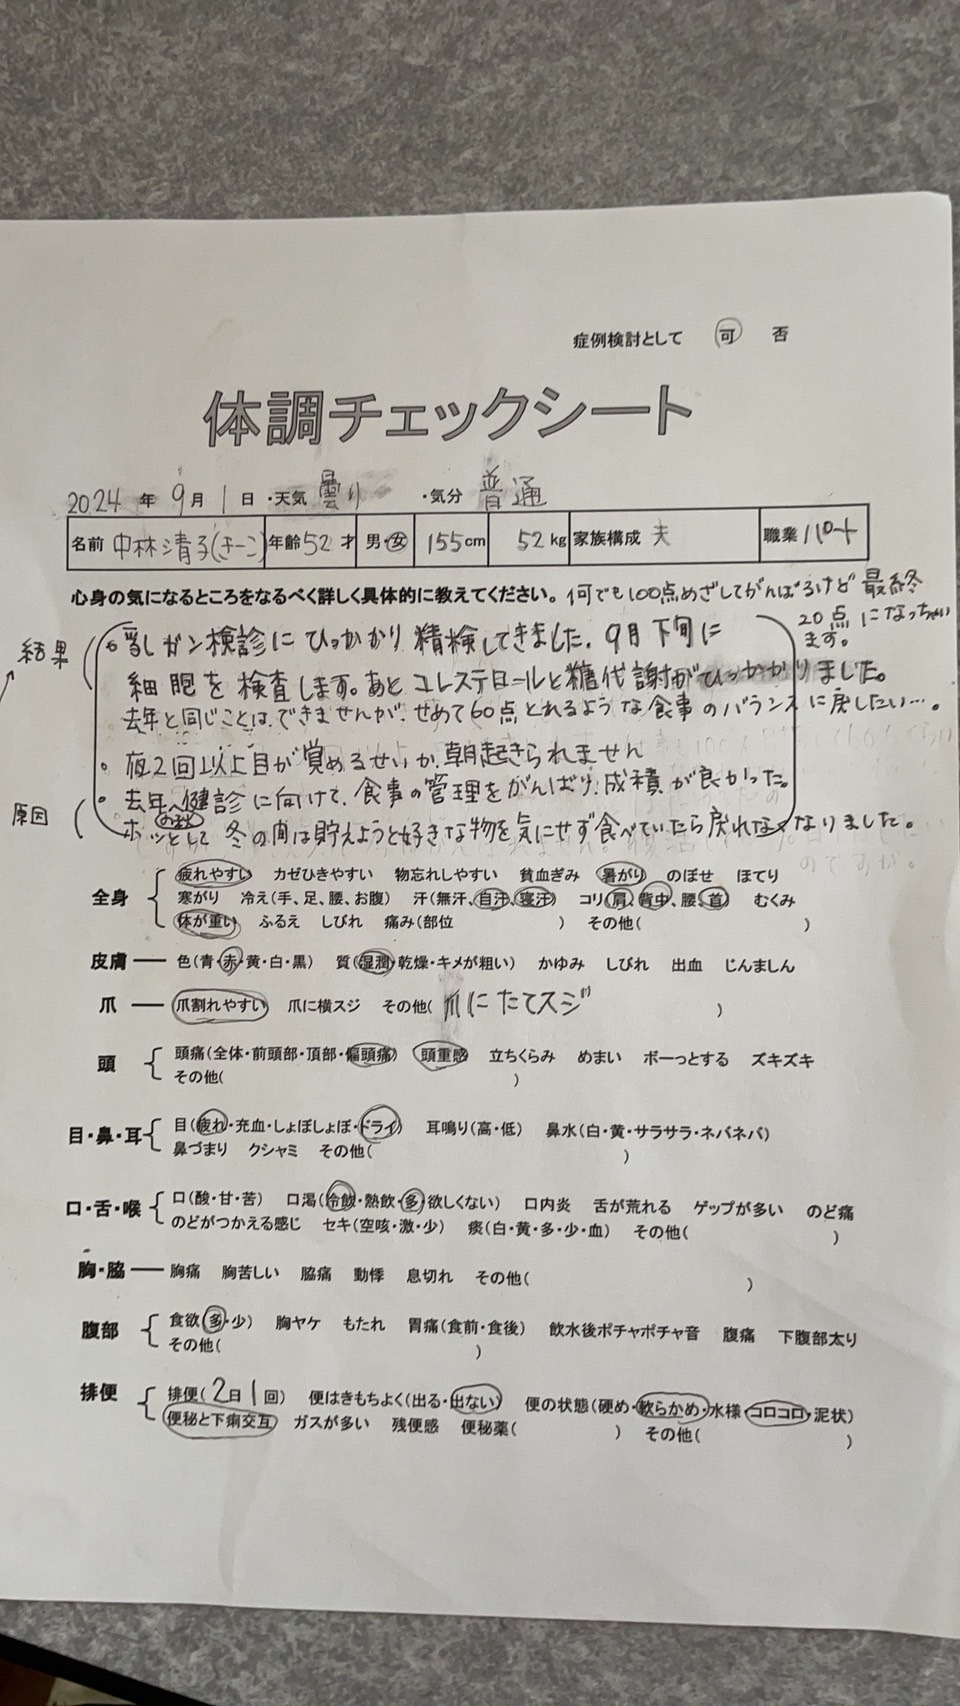 症例検討として 可 否
体調チェックシート
2024 年 9月 1日 ・天気 曇り ・気分 普通
名前 中林清子(きーこ) 年齢52才 男・女 155cm 52kg 家族構成 夫 職業 パート
心身の気になるところをなるべく詳しく具体的に教えてください。何でも100点めざしてがんばるけど 最終
20点になっちゃい
ます。
結果
・乳ガン検診にひっかかり精検してきました。9月下旬に
細胞を検査します。あと コレステロールと糖代謝がひっかかりました。
去年と同じことはできませんが、せめて60点とれるような食事のバランスに戻したい…。
・夜2回以上目が覚めるせいか、朝起きられません
・去年、健診に向けて、食事の管理をがんばり、成績が良かった。
原因
ホッとして 冬の間は貯えようと好きな物を気にせず食べていたら戻れなくなりました。
全身 疲れやすい カゼひきやすい 物忘れしやすい 貧血ぎみ 暑がり のぼせ ほてり
寒がり 冷え(手、足、腰、お腹) 汗(無汗、自汗、寝汗) コリ(肩、背中、腰、首) むくみ
体が重い ふるえ しびれ 痛み(部位 ) その他( )
皮膚 色(青・赤・黄・白・黒) 質(湿潤・乾燥・キメが粗い) かゆみ しびれ 出血 じんましん
爪 爪割れやすい 爪に横スジ その他( 爪にたてスジ )
頭 頭痛(全体・前頭部・頂部・偏頭痛) 頭重感 立ちくらみ めまい ボーっとする ズキズキ
その他( )
目・鼻・耳 目(疲れ・充血・しょぼしょぼ・ドライ) 耳鳴り(高・低) 鼻水(白・黄・サラサラ・ネバネバ)
鼻づまり クシャミ その他( )
口・舌・喉 口(酸・甘・苦) 口渇(冷飲・熱飲・多・欲しくない) 口内炎 舌が荒れる ゲップが多い のど痛
のどがつかえる感じ セキ(空咳・激・少) 痰(白・黄・多・少・血) その他( )
胸・脇 胸痛 胸苦しい 脇痛 動悸 息切れ その他( )
腹部 食欲(多・少) 胸ヤケ もたれ 胃痛(食前・食後) 飲水後ポチャポチャ音 腹痛 下腹部太り
その他( )
排便 排便(2日1回) 便はきもちよく(出る・出ない) 便の状態(硬め・軟らかめ・水様・コロコロ・泥状)
便秘と下痢交互 ガスが多い 残便感 便秘薬( ) その他( )